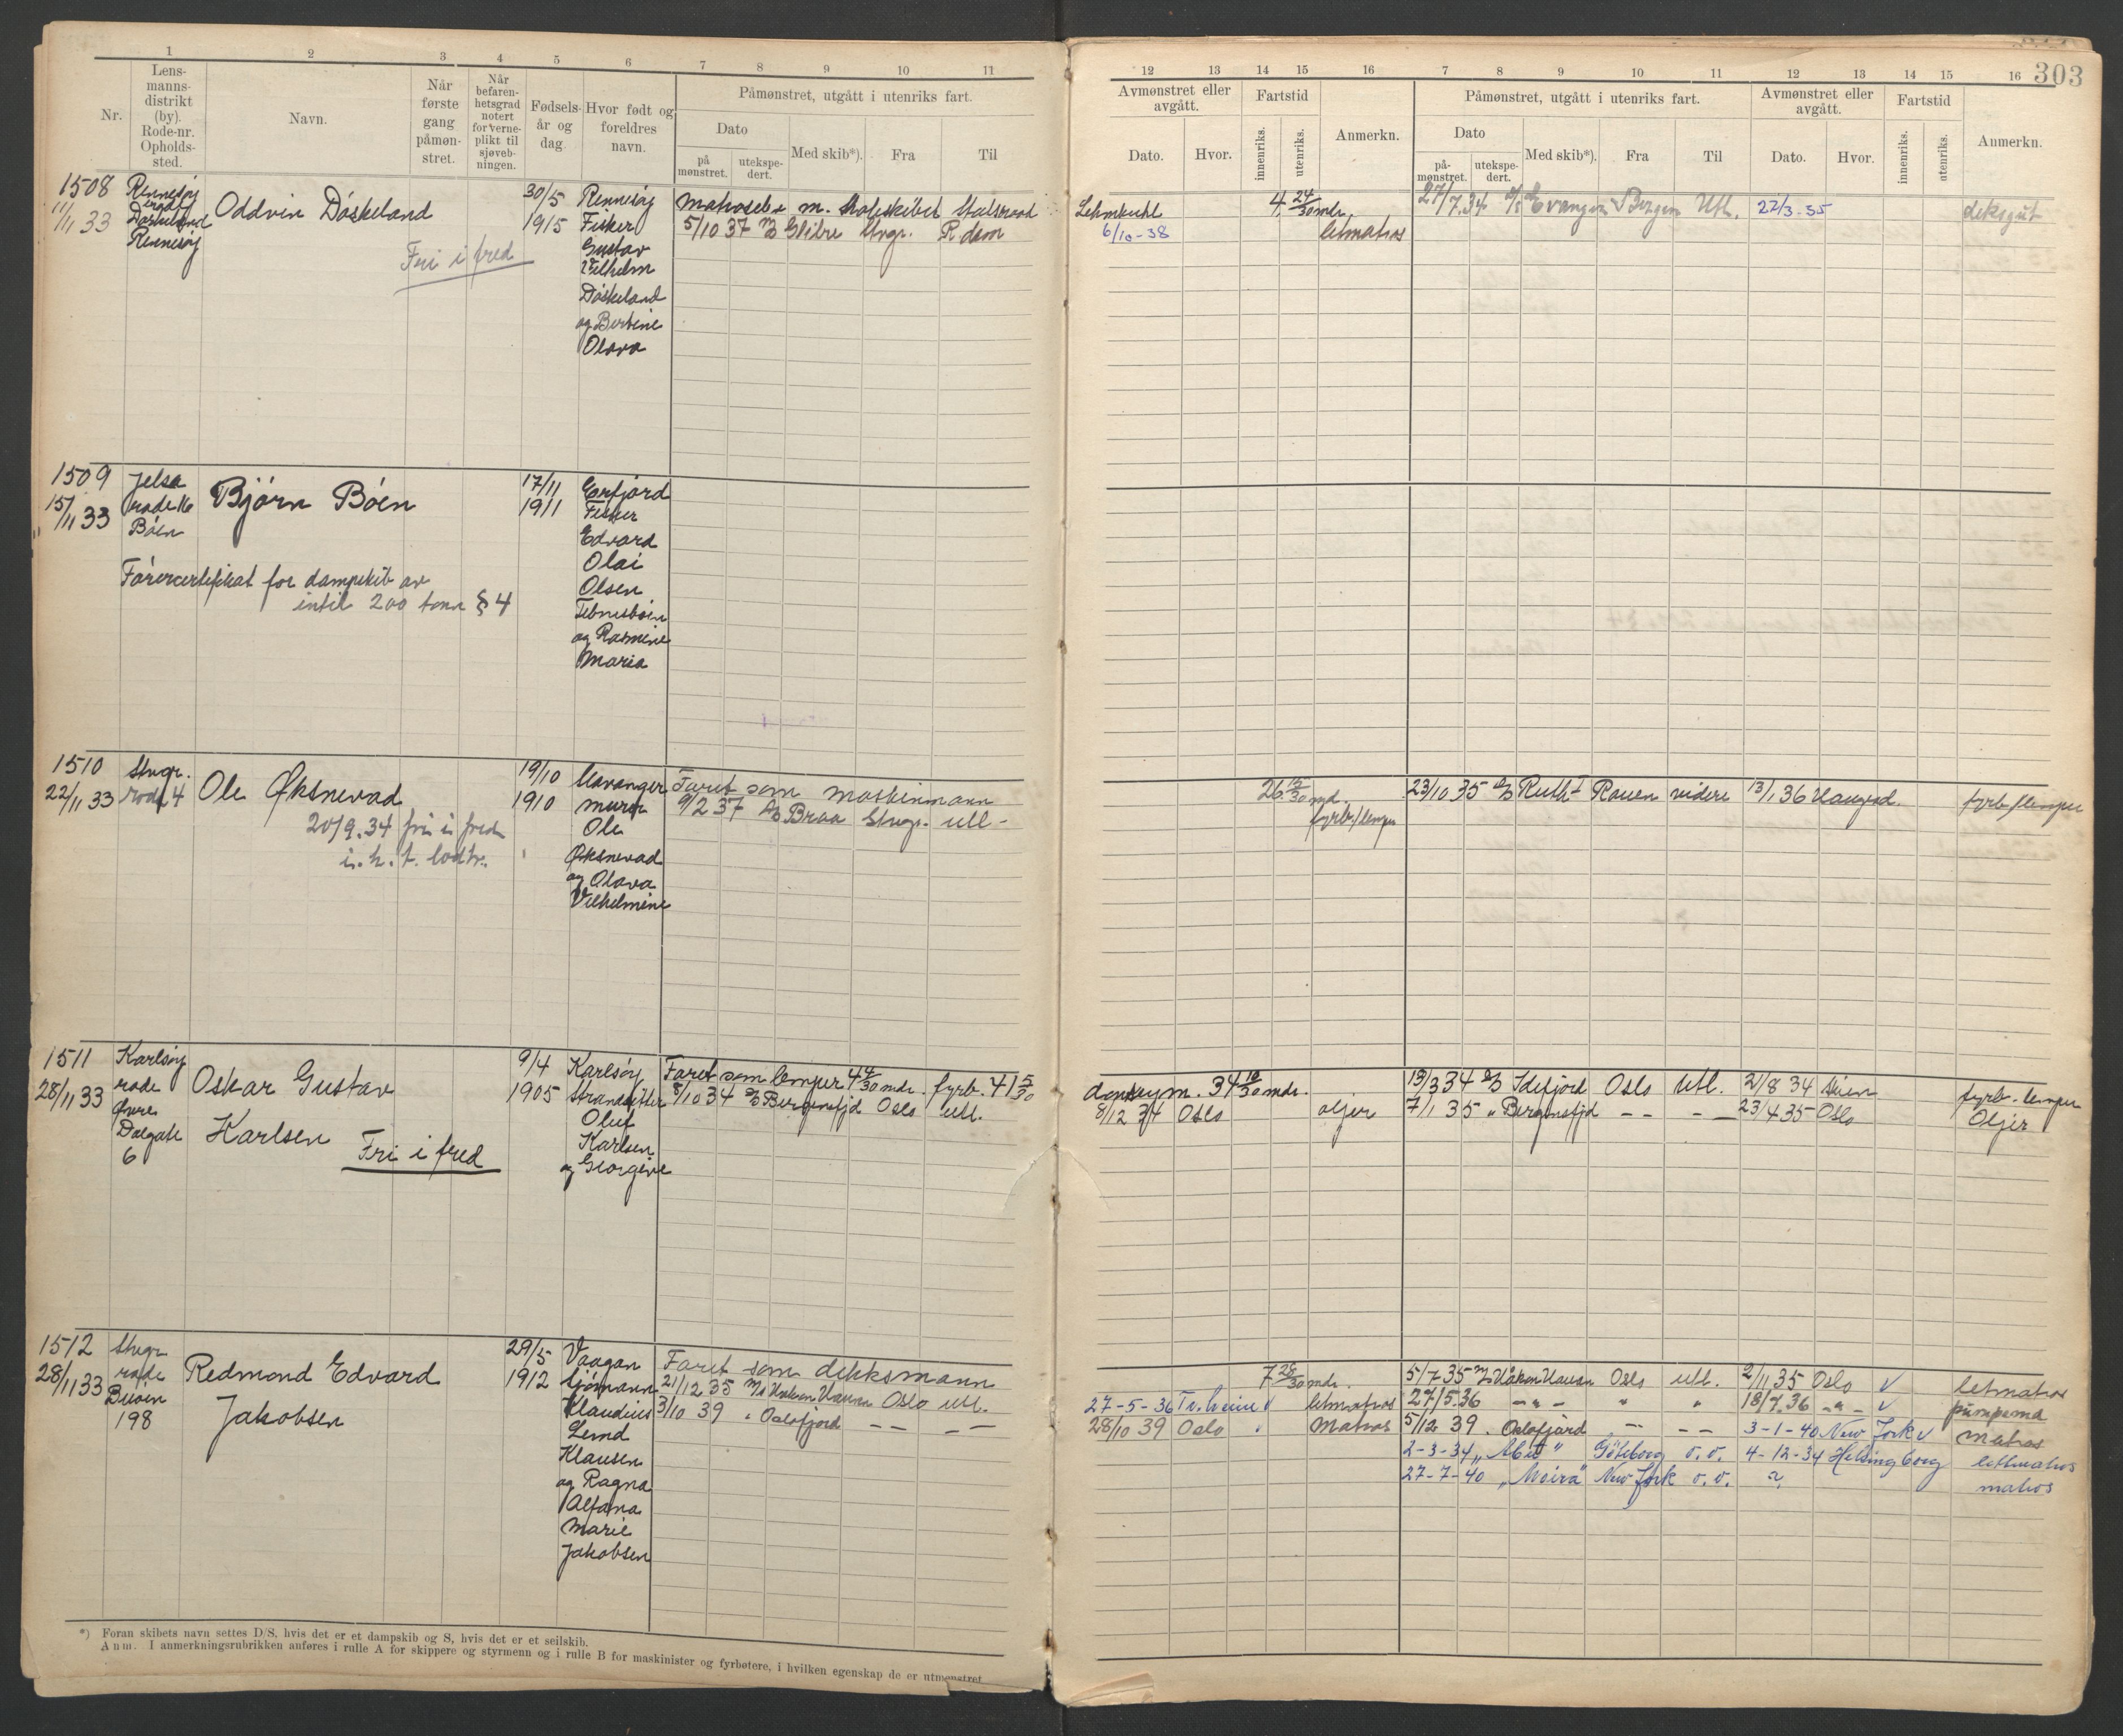 303
1 2 3 4 5 6 7 8 9 10 11
Nr.
Lens-
manns-
distrikt
(by).
Rode-nr.
Opholds-
sted.
Navn.
Når
første
gang
påmøn-
stret.
Når
befaren-
hetsgrad
notert
for verne-
plikt til
sjøveb-
ningen.
Fødsels-
år og
dag.
Hvor født og
foreldres
navn.
Påmønstret, utgått i utenriks fart.
Dato
på
mønstret.
utekspe-
dert.
Med skib*).
Fra
Til
12 13 14 15 16 7 8 9 10 11 12 13 14 15 16
Avmønstret eller
avgått.
Dato. Hvor.
Fartstid
innenriks.
utenriks.
Anmerkn.
Påmønstret, utgått i utenriks fart.
Dato
på-
mønstret.
utekspe-
dert.
Med skib*).
Fra
Til
Avmønstret eller
avgått.
Dato. Hvor.
Fartstid
innenriks.
utenriks.
Anmerkn.
1508
11/11 33
Rennesøy
Døskeland
Rennesøy
Oddvin Døskeland
Fri i fred
30/5
1915
Rennesøy
Fisker
Gustav
Vilhelm
Døskeland
og Bertine
Olava
Matroselev m. Skoleskibet Statsraad
Lehmkuhl 4 24/30 mdr.
27/7.34 Evanger Bergen Utl. 27/3-35 deksgut
5/10 37 Stvgr. R dam
6/10-38 letmatros
1509
15/11 33
Jelsa
rode 16
Bøen
Bjørn Bøen
Førercertifikat for dampskib av
intil 200 tonn § 4
17/11
1911
Erfjord
Fisker
Edvard
Olai
Olsen
og Rasmine
Maria
1510
22/11 33
Stvgr.
rode 4
Ole Øksnevad
20/9.34 fri i fred
i. h. t. lodtr.
19/10
1910
Stavanger
murer
Ole
Øksnevad
og Olava
Vilhelmine
Faret som maskinmann
9/2 37 D/S Braa Stvgr. utl-
26 12/30 md.
fyrb./lemper
23/10 35 D/S Ruth I Rouen videre 13/1 36 Haugsd. fyrb/lemper
1511
28/11 33
Karlsøy
rode
Øvre
Dalgate
6
Oskar Gustav
Karlsen
Fri i fred
9/4
1905
Karlsøy
Strandsitter
Oluf
Karlsen
og Georgine
Faret som lemper 44 4/30 mdr. fyrb. 41 5/30
donkeym. 34 10/30 mdr.
13/3 34 D/S Idefjord Oslo Utl. 21/8 34 Skien fyrb. lemper
8/10 34 D/S Bergensfjd Oslo utl.
8/12 34 Oslo oljer
7/1 35 " Bergensfjd - - - - 23/4 35 Oslo Oljer
1512
28/11 33
Stvgr
rode
Buøen
198
Redmond Edvard
Jakobsen
29/5
1912
Vaagan
Sjømann
Klaudius
Klausen
og Ragna
Marie
Jakobsen
Faret som dekksmann
7 28/30 mdr.
5/7 35 M/S Håkon Hauan Oslo utl. 2/11 35 Oslo letmatros
21/12 35 M/S Hakon Hauan Oslo utl.
27-5-36 letmatros
27/5.36 - " - " " 18/7.36 - " - pumpema
3/10 39 " Oslofjord - - - -
28/10 39 Oslo Matros
5/12 39 . Oslofjord - - - - 3-1-40 New York matros
2-3-34 Göteborg o.v. 4-12-34 Helsingborg lettmatros
27-7-40 "Moira" New York o.v. ? matros
*) Foran skibets navn settes D/S, hvis det er et dampskib og S, hvis det er et seilskib.
Anm. I anmerkningsrubrikken anføres i rulle A for skippere og styrmenn og i rulle B for maskinister og fyrbøtere, i hvilken egenskap de er utmønstret